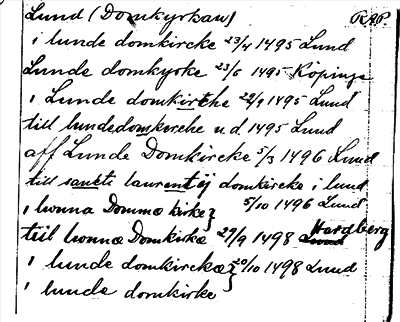 Lund (Domkyrkan) RAP.
i lunde domkircke 23/4 1495 Lund
Lunde domkyrke 23/6 1495 Köpinge
i Lunde domkirche 29/9 1495 Lund
till lundedomskerche u d 1495 Lund
aff Lunde Domkircke 5/3 1496 Lund
till sancti laurentij domkircke i lund
i lwnna Dommæ kirke} 5/10 1496 Lund
till lwnnæ Domkirkæ 29/9 1498 Lund Hardberg
i lunde domkirckæ} 20/10 1498 Lund
i lunde domkirke